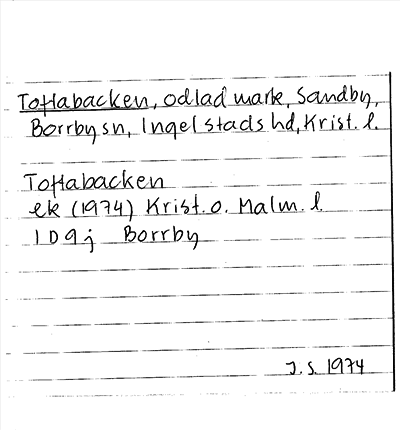 Toftabacken, odlad mark, Sandby,
Borrby sn, Ingelstads hd, Krist. l.
Toftabacken
ek (1974) Krist. o. Malm. l
1D9j Borrby
J.S. 1974